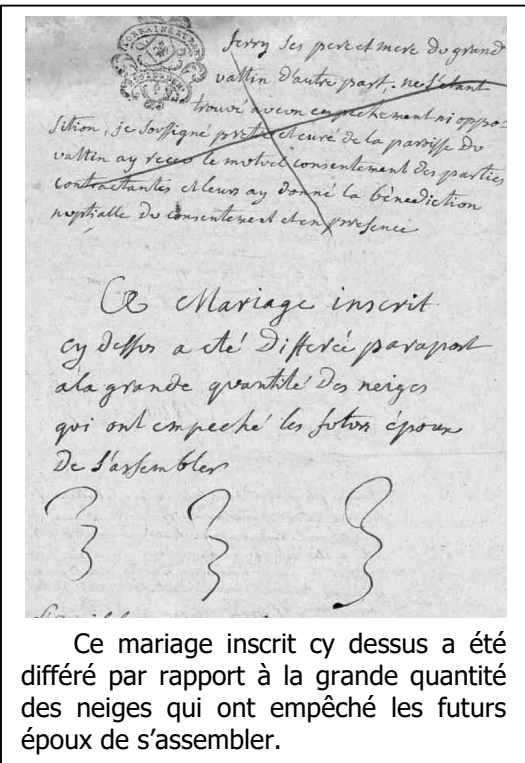 LORRAINE ET BAR
ferry ses pere et mere du grand
valtin d'autre part, ne s'étant
trouvé aucun empechement ni oppo-
sition, je soussigné pretre et curé de la paroisse du
valtin ay receu le mutuel consentement des parties
contractantes et leurs ay donné la bénédiction
nuptialle du consentement et en presence
Ce Mariage inscrit
cy dessus a eté Differé paraport
a la grande quantité Des neiges
qui ont empeché les futurs époux
De s'assembler
Ce mariage inscrit cy dessus a été
différé par rapport à la grande quantité
des neiges qui ont empêché les futurs
époux de s’assembler.